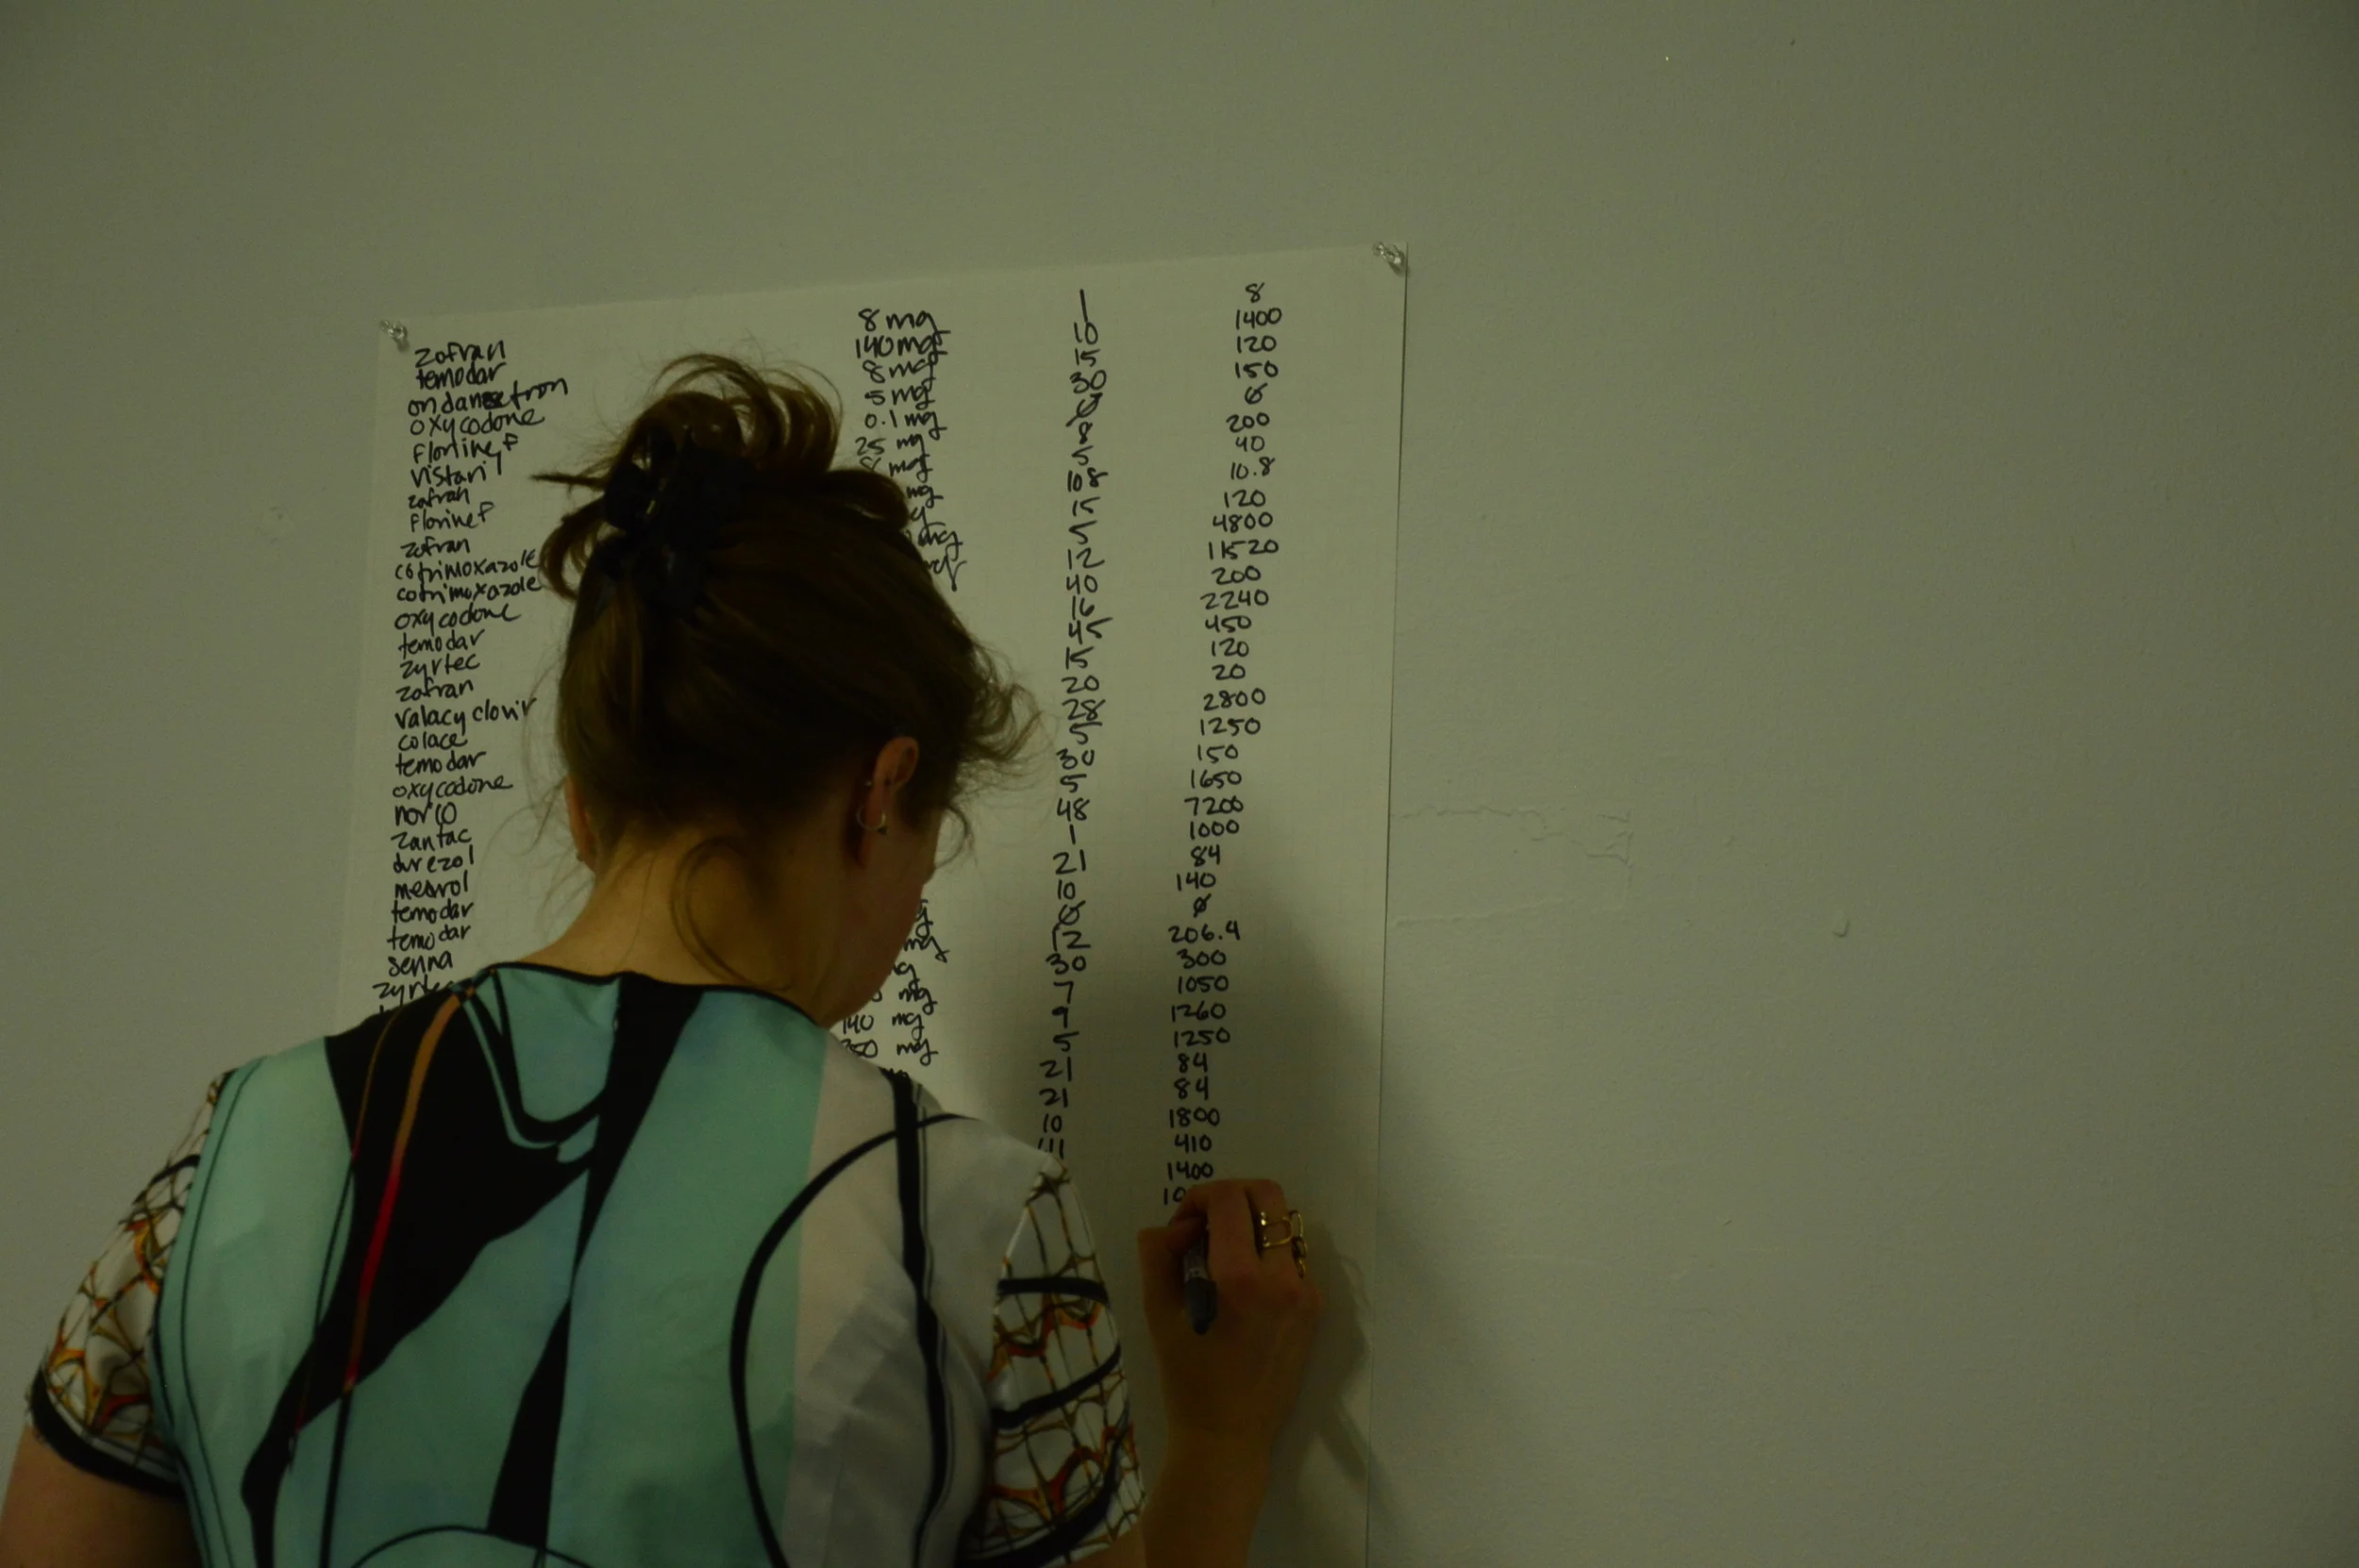 zofran 8 mg 1 8
temodar 140 mg 10 1400
ondansetron 8 mg 15 120
oxycodone 5 mg 30 150
florinef 0.1 mg
vistaril 25 mg 8 200
zofran 8 mg 5 40
florinef mg 108 10.8
zofran 15 120
cotrimoxazole mg 5 4800
cotrimoxazole 12 11520
oxycodone 40 200
temodar 16 2240
zyrtec 45 450
zofran 15 120
valacyclovir 20 20
colace 28 2800
temodar 5 1250
oxycodone 30 150
norco 5 1650
zantac 48 7200
durezol 1 1000
medrol 21 84
temodar 10 140
temodar
senna mg 12 206.4
zyrtec 30 300
mg 7 1050
140 mg 9 1260
250 mg 5 1250
21 84
21 84
10 1800
41 410
1400